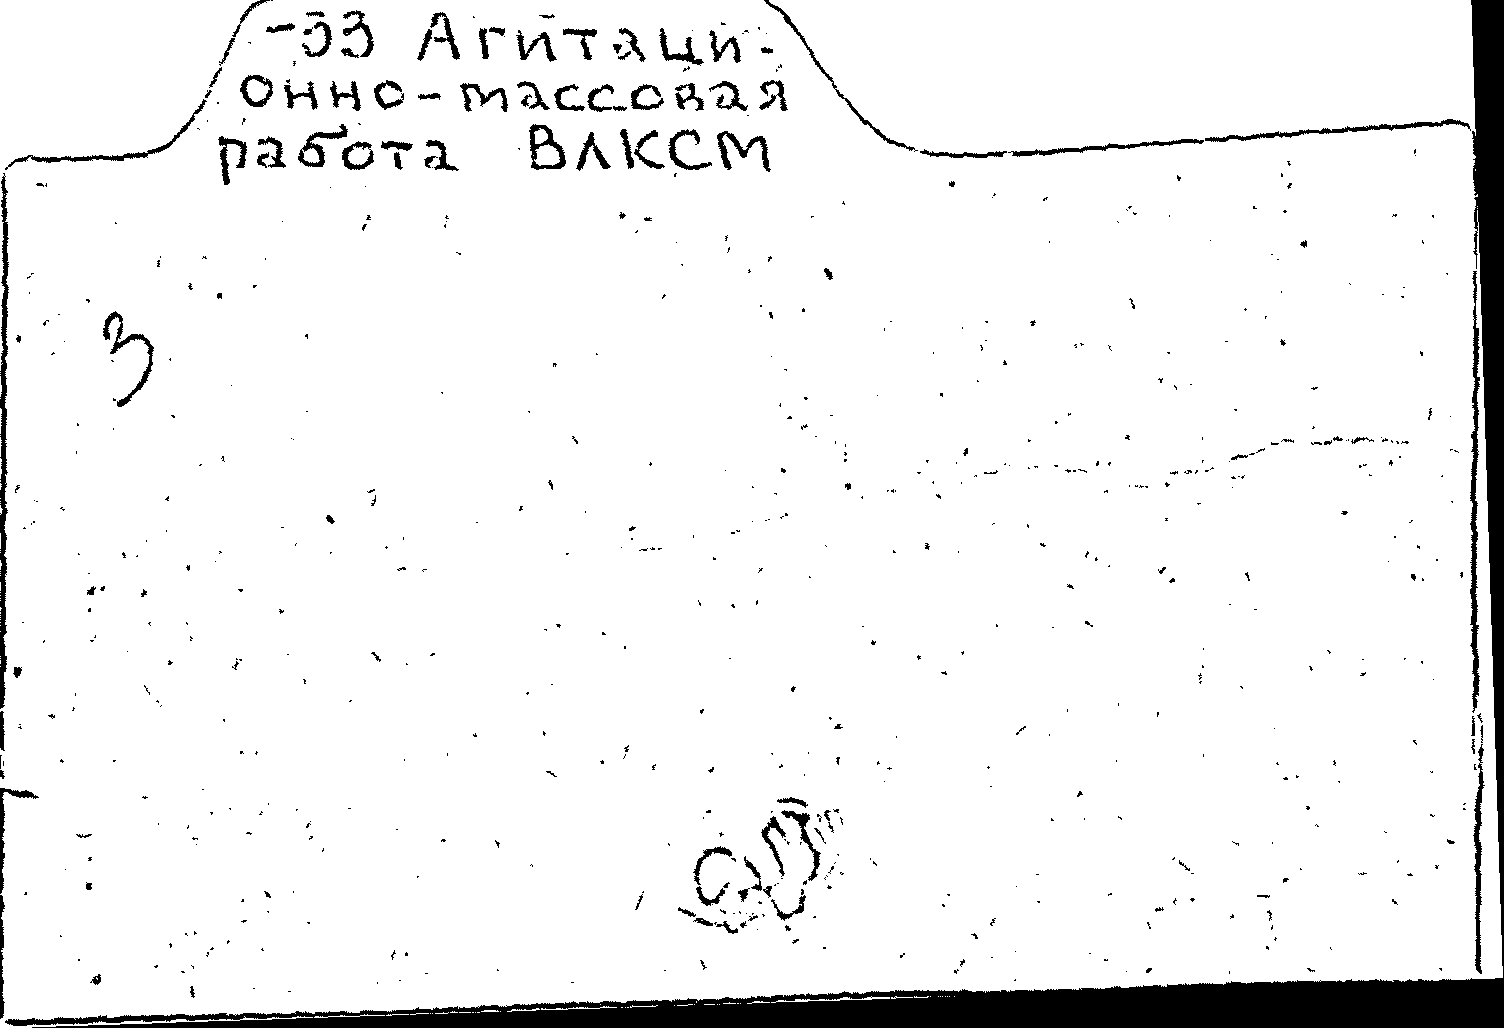 -33 Агитаци-
онно-массовая
работа ВЛКСМ
3